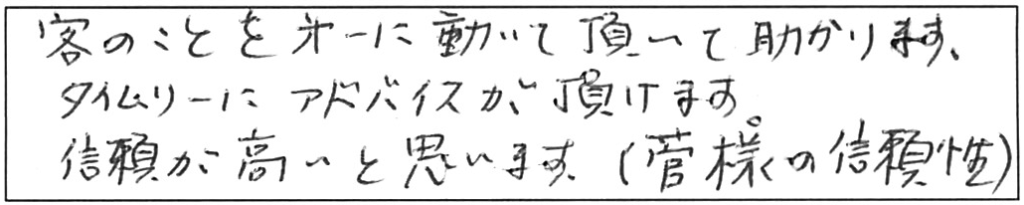 客のことを第一に動いて頂いて助かります、
タイムリーに アドバイスが頂けます。
信頼が高いと思います、(菅様の信頼性)